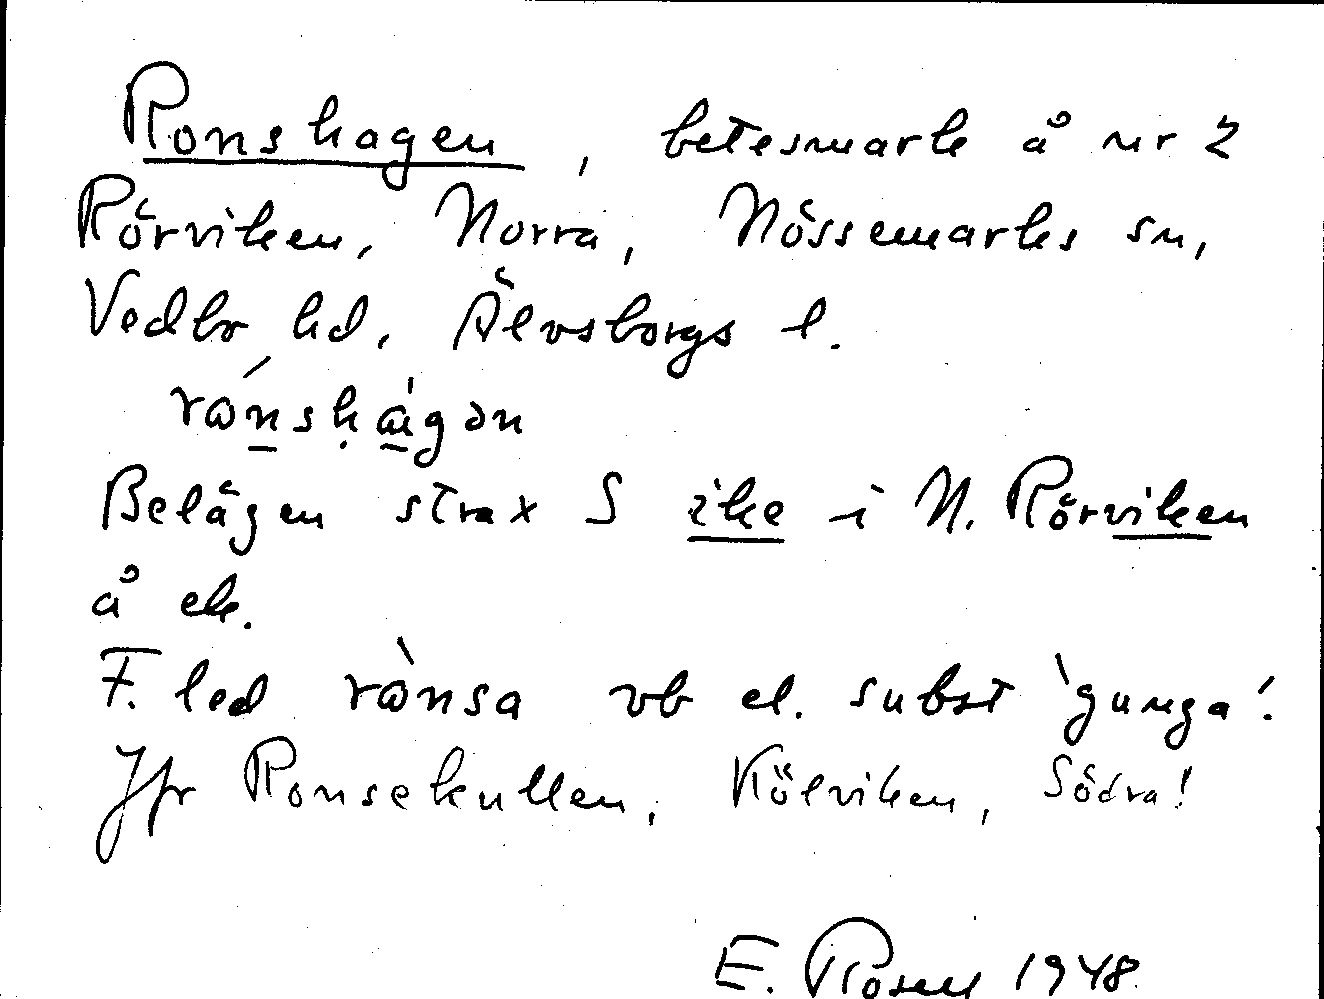 Ronshagen, betesmark å nr 2
Rörviken, Norra, Nössemarks sn,
Vedbo hd. Älvsborgs l.
rónshágən
Belägen strax S ike i N. Rörviken
å ek.
F. led rònsa vb el. subst 'gunga'.
Jfr Ronsekullen, Kölviken, Södra!
E. Rosell 1948.